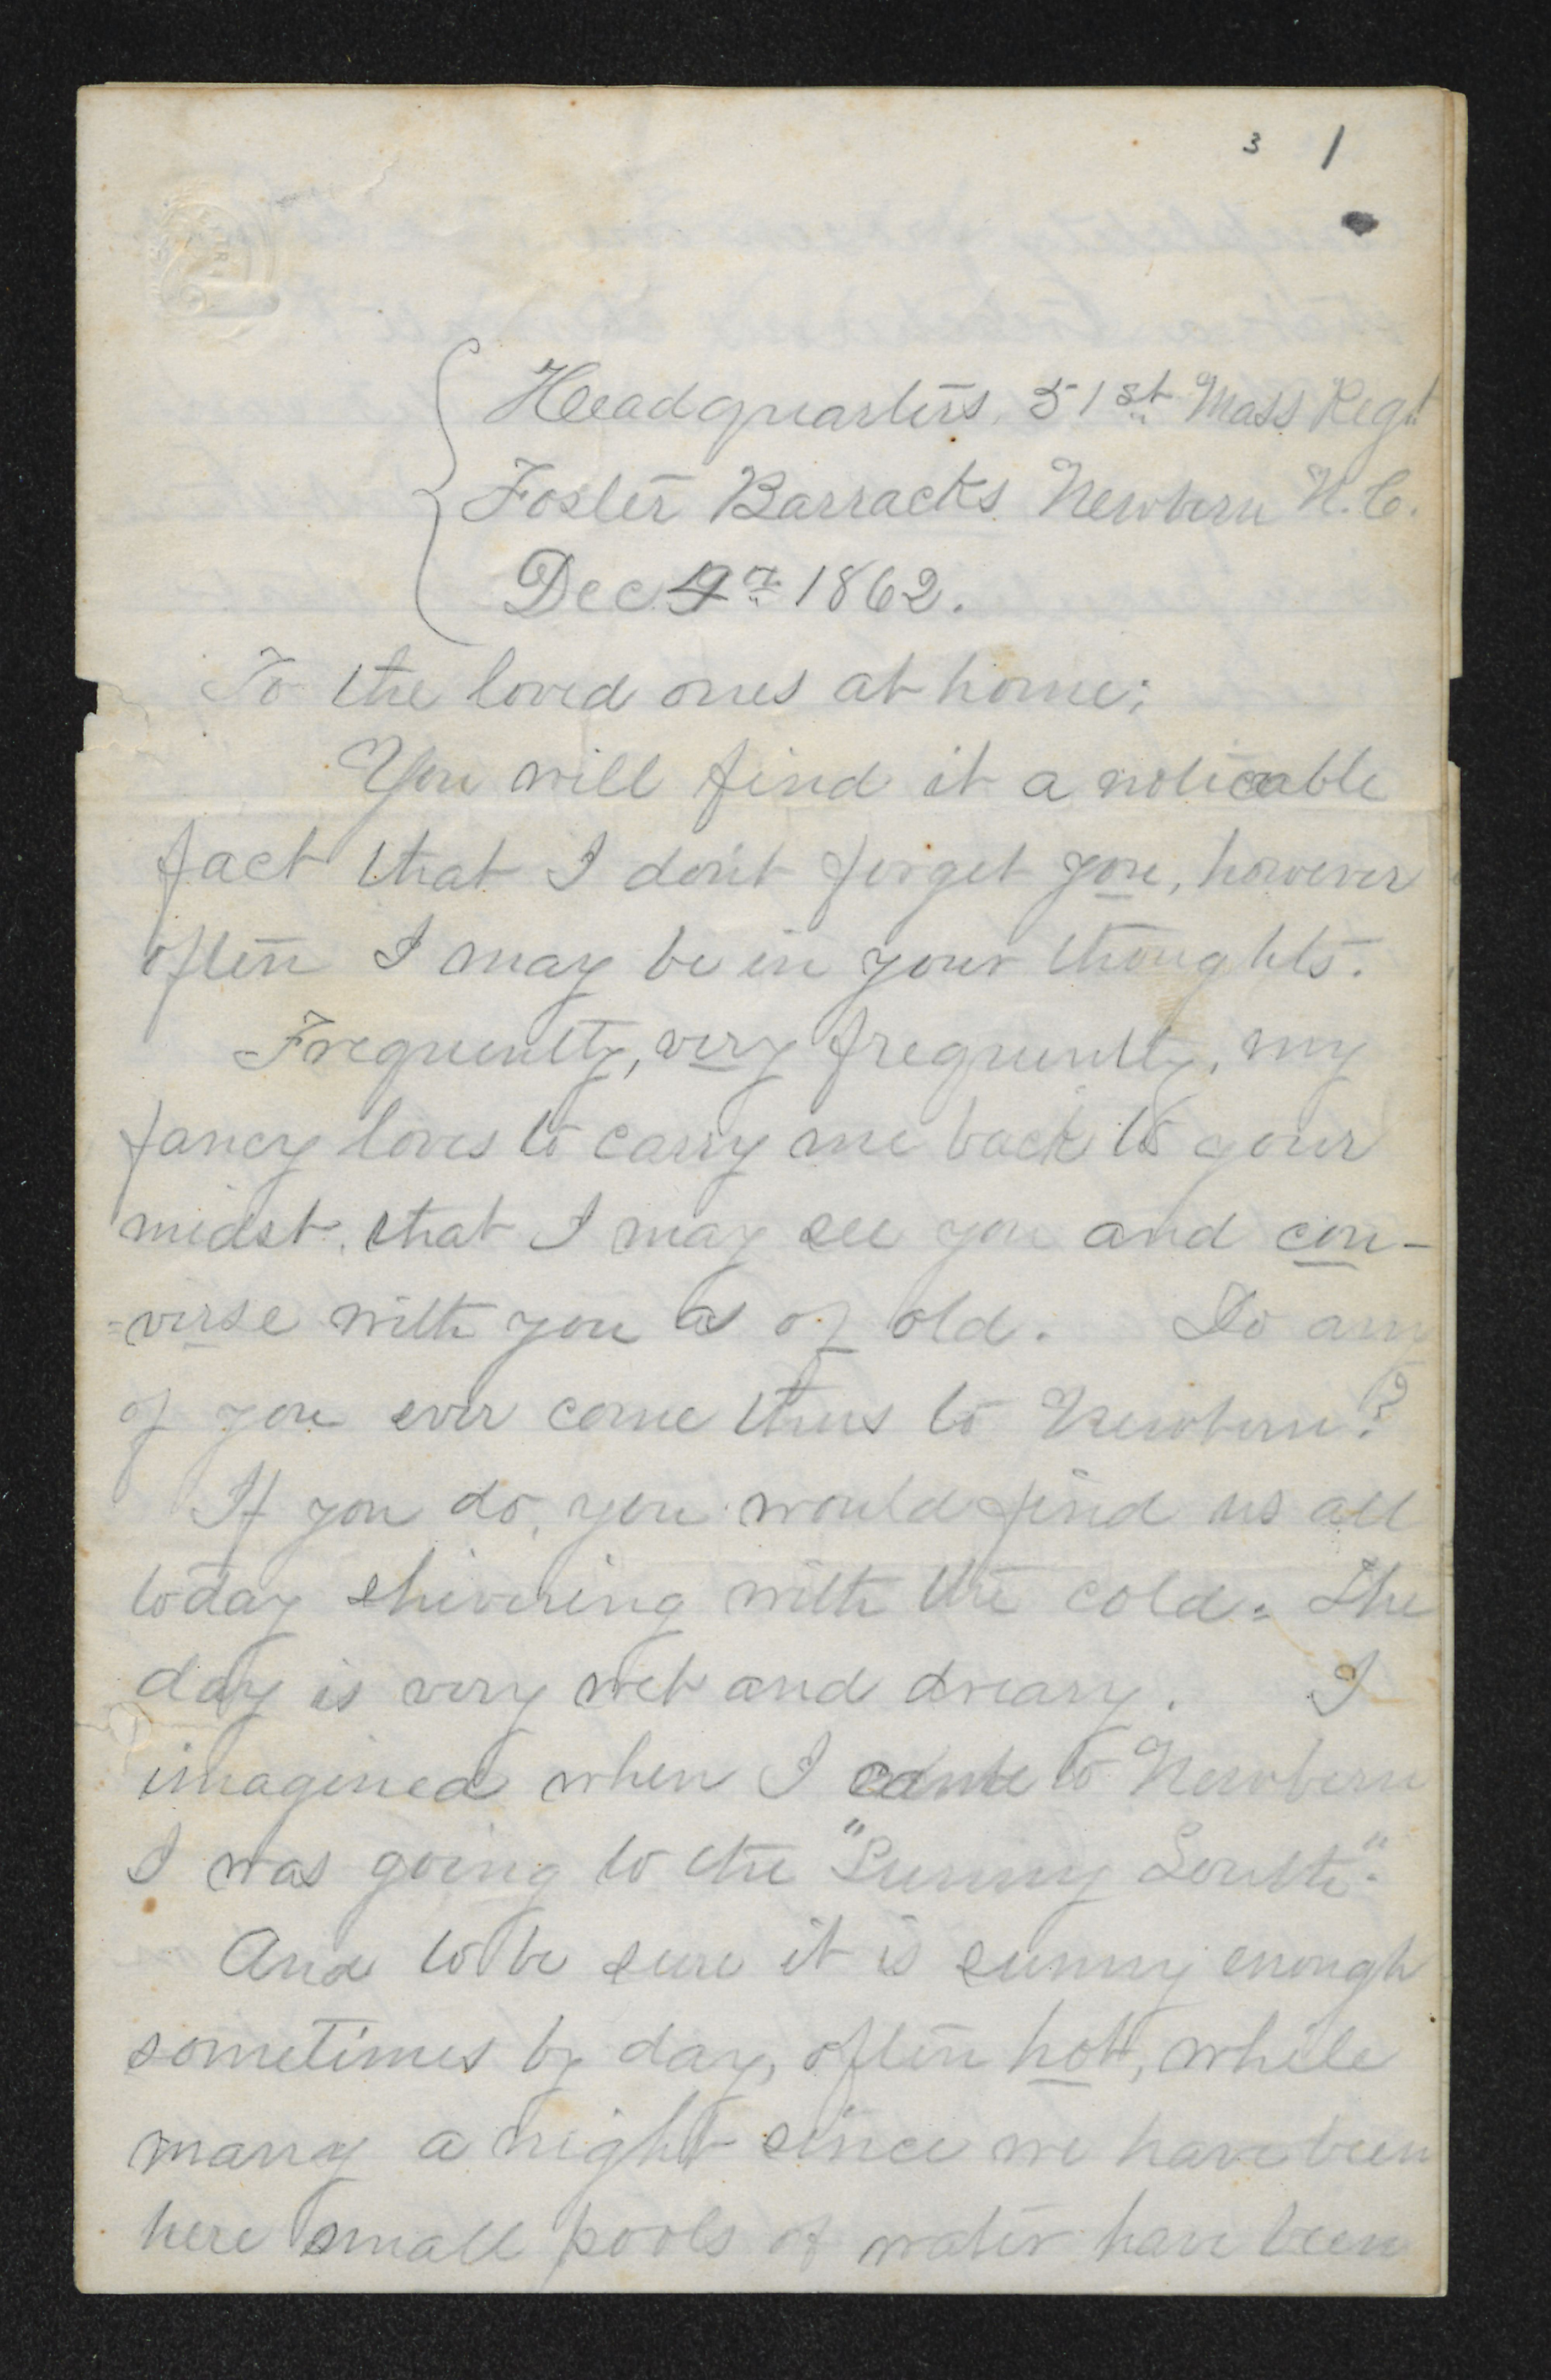 3 1
Headquarters, 51st Mass Regt
Foster Barracks Newbern N.C.
Dec 1862.
To the loved ones at home;
You will find it a noticable
fact that I don't forget you, however
often I may be in your thoughts.
Frequently, very frequently, my
fancy loves to carry me back to your
midst, that I may see you and con-
=verse with you as of old. Do any
of you ever come thus to Newbern?
If you do, you would find us all
today shivering with the cold. The
day is very wet and dreary. I
imagined when I came to Newbern
I was going to the "Sunny South".
And to be sure it is sunny enough
sometimes by day, often hot, while
many a night since we have been
here small pools of water have been